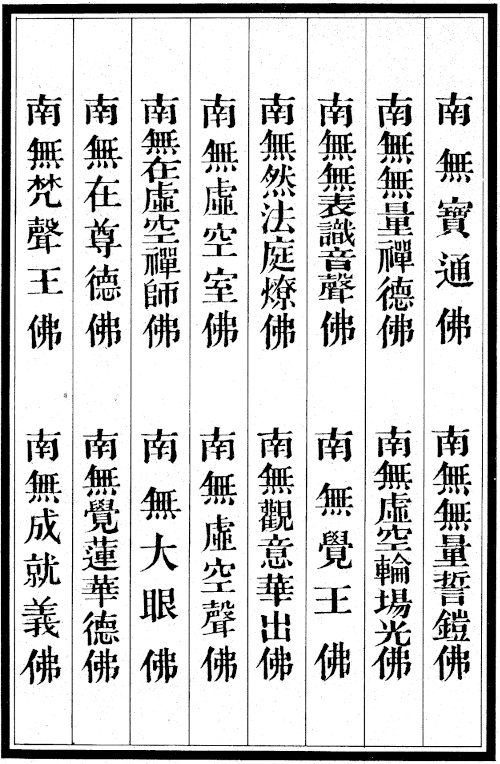 南無寶通佛　南無無量誓鎧佛
南無無量禪德佛　南無虛空輪場光佛
南無無表識音聲佛　南無覺王佛
南無然法庭燎佛　南無觀意華出佛
南無虛空室佛　南無虛空聲佛
南無在虛空禪師佛　南無大眼佛
南無在尊德佛　南無覺蓮華德佛
南無梵聲王佛　南無成就義佛